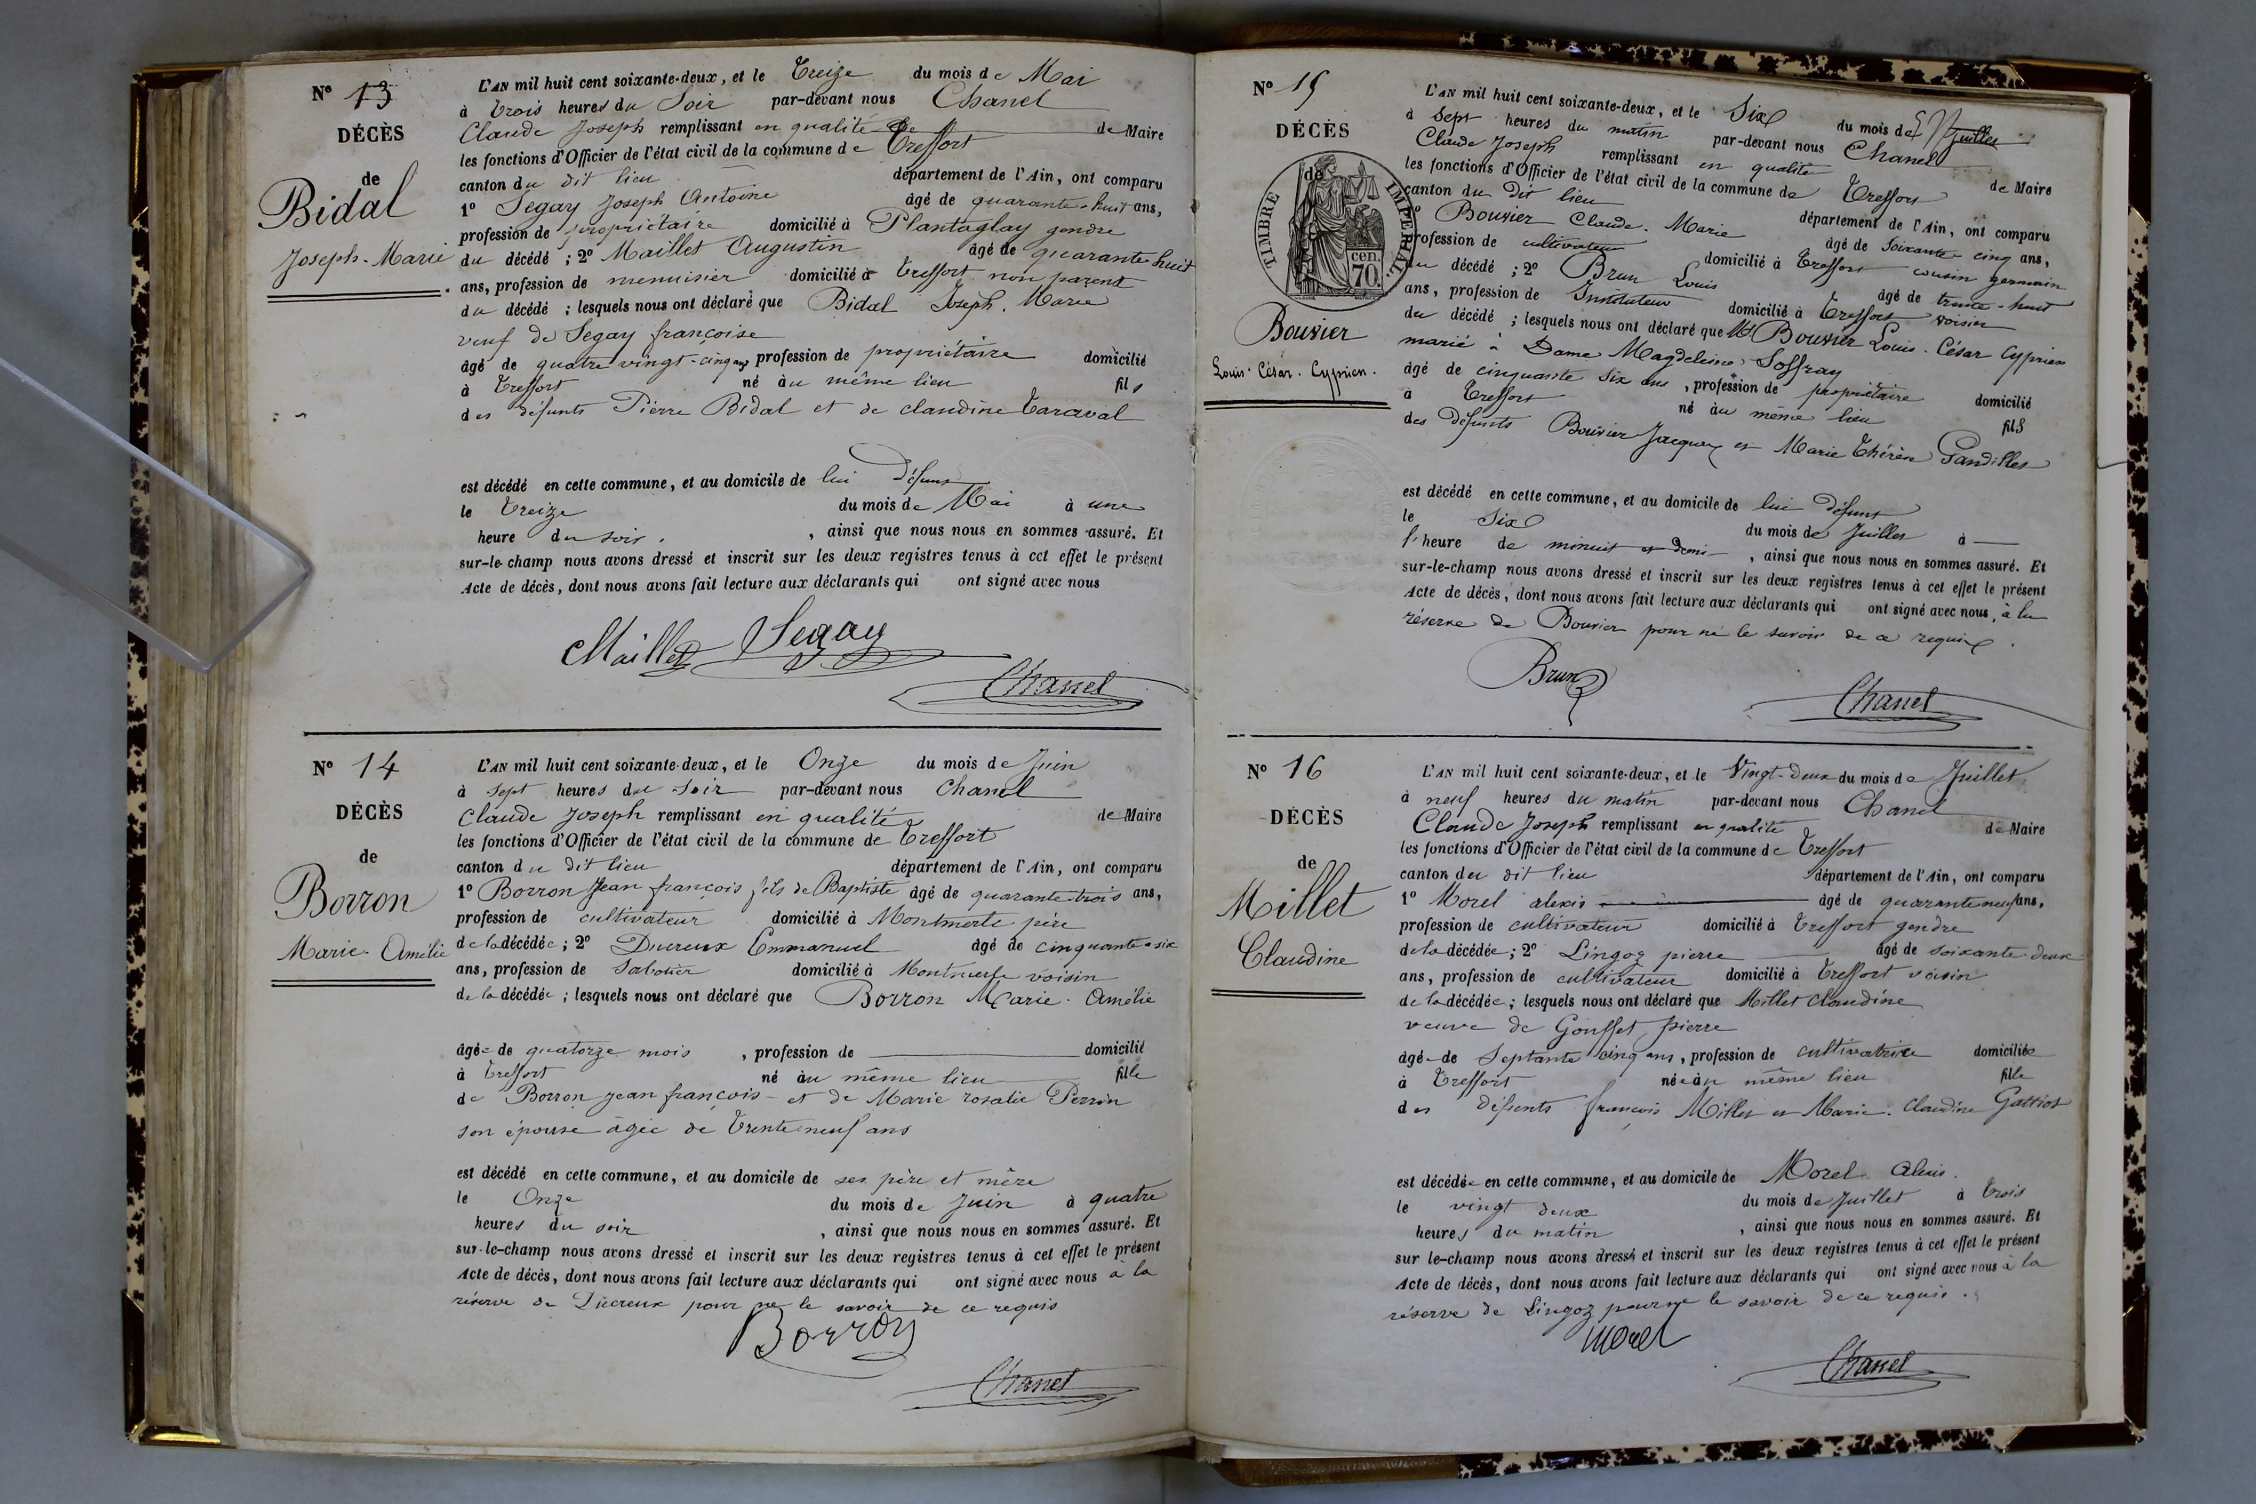 N° 13
DÉCÈS
de
Bidal
Joseph-Marie
L'AN mil huit cent soixante-deux, et le Treize du mois de Mai
à trois heures du Soir par-devant nous Chanel
Claude Joseph remplissant en qualité de Maire
les fonctions d'Officier de l'état civil de la commune de Treffort
canton du dit lieu département de l'Ain, ont comparu
1° Segay Joseph Antoine âgé de quarante-huit ans,
profession de propriétaire domicilié à Plantaglay gendre
du décédé ; 2° Maillet Augustin âgé de quarante huit
ans, profession de menuisier domicilié à Treffort non parent
du décédé ; lesquels nous ont déclaré que Bidal Joseph. Marie
veuf de Segay françoise
âgé de quatre vingt-cinq ans profession de propriétaire domicilié
à Treffort né au même lieu fils
des défunts Pierre Bidal et de claudine Taraval
est décédé en cette commune, et au domicile de lui Défunt
le Treize du mois de Mai à une
heure du soir. , ainsi que nous nous en sommes assuré. Et
sur-le-champ nous avons dressé et inscrit sur les deux registres tenus à cet effet le présent
Acte de décès, dont nous avons fait lecture aux déclarants qui ont signé avec nous
Maillet Segay
Chanel
N° 14
DÉCÈS
de
Borron
Marie-Amélie
L'AN mil huit cent soixante-deux, et le Onze du mois de Juin
à sept heures du soir par-devant nous Chanel
Claude Joseph remplissant en qualité de Maire
les fonctions d'Officier de l'état civil de la commune de Treffort
canton du dit lieu département de l'Ain, ont comparu
1° Borron Jean françois fils de Baptiste âgé de quarante-trois ans,
profession de cultivateur domicilié à Montmerle père
de la décédée ; 2° Ducreux Emmanuel âgé de cinquante-six
ans, profession de Sabotier domicilié à Montmerle voisin
de la décédée ; lesquels nous ont déclaré que Borron Marie. Amélie
âgée de quatorze mois , profession de domicilié
à Treffort né au même lieu fille
de Borron jean françois et de Marie rosalie Perrin
son épouse âgée de Trente neuf ans
est décédé en cette commune, et au domicile de ses père et mère
le Onze du mois de Juin à quatre
heures du soir , ainsi que nous nous en sommes assuré. Et
sur-le-champ nous avons dressé et inscrit sur les deux registres tenus à cet effet le présent
Acte de décès, dont nous avons fait lecture aux déclarants qui ont signé avec nous à la
réserve de Ducreux pour ne le savoir de ce requis
Borron
Chanel
N° 15
DÉCÈS
de
TIMBRE IMPÉRIAL
70 cen.
Bouvier
Louis. César. Cyprien.
L'AN mil huit cent soixante-deux, et le Six du mois de Juillet
à Sept heures du matin par-devant nous Chanel
Claude Joseph remplissant en qualité de Maire
les fonctions d'Officier de l'état civil de la commune de Treffort
canton du Dit lieu département de l'Ain, ont comparu
1° Bouvier Claude. Marie âgé de Soixante cinq ans,
profession de cultivateur domicilié à Treffort cousin germain
du décédé ; 2° Brun Louis âgé de trente-huit
ans, profession de Instituteur domicilié à Treffort voisin
du décédé ; lesquels nous ont déclaré que Mr Bouvier Louis. César Cyprien
marié à Dame Magdeleine Soffray
âgé de cinquante six ans , profession de propriétaire domicilié
à Treffort né au même lieu fils
des Défunts Bouvier Jacques et Marie Thérèse Gandillet
est décédé en cette commune, et au domicile de lui défunt
le Six du mois de Juillet à
l'heure de minuit et demi , ainsi que nous nous en sommes assuré. Et
sur-le-champ nous avons dressé et inscrit sur les deux registres tenus à cet effet le présent
Acte de décès, dont nous avons fait lecture aux déclarants qui ont signé avec nous, à la
réserve de Bouvier pour ne le savoir de ce requis.
Brun
Chanel
N° 16
DÉCÈS
de
Millet
Claudine
L'AN mil huit cent soixante-deux, et le Vingt-deux du mois de Juillet
à neuf heures du matin par-devant nous Chanel
Claude Joseph remplissant en qualité de Maire
les fonctions d'Officier de l'état civil de la commune de Treffort
canton du dit lieu département de l'Ain, ont comparu
1° Morel alexis âgé de quarante neuf ans,
profession de cultivateur domicilié à Treffort gendre
de la décédée ; 2° Lingoz pierre âgé de soixante deux
ans, profession de cultivateur domicilié à Treffort voisin
de la décédée ; lesquels nous ont déclaré que Millet claudine
veuve de Gouffet pierre
âgée de Septante cinq ans, profession de cultivatrice domiciliée
à Treffort née au même lieu fille
des défunts françois Millet et Marie. Claudine Gattiot
est décédée en cette commune, et au domicile de Morel Alexis.
le vingt deux du mois de Juillet à trois
heures du matin , ainsi que nous nous en sommes assuré. Et
sur le-champ nous avons dressé et inscrit sur les deux registres tenus à cet effet le présent
Acte de décès, dont nous avons fait lecture aux déclarants qui ont signé avec nous à la
réserve de Lingoz pour ne le savoir de ce requis.
Morel
Chanel